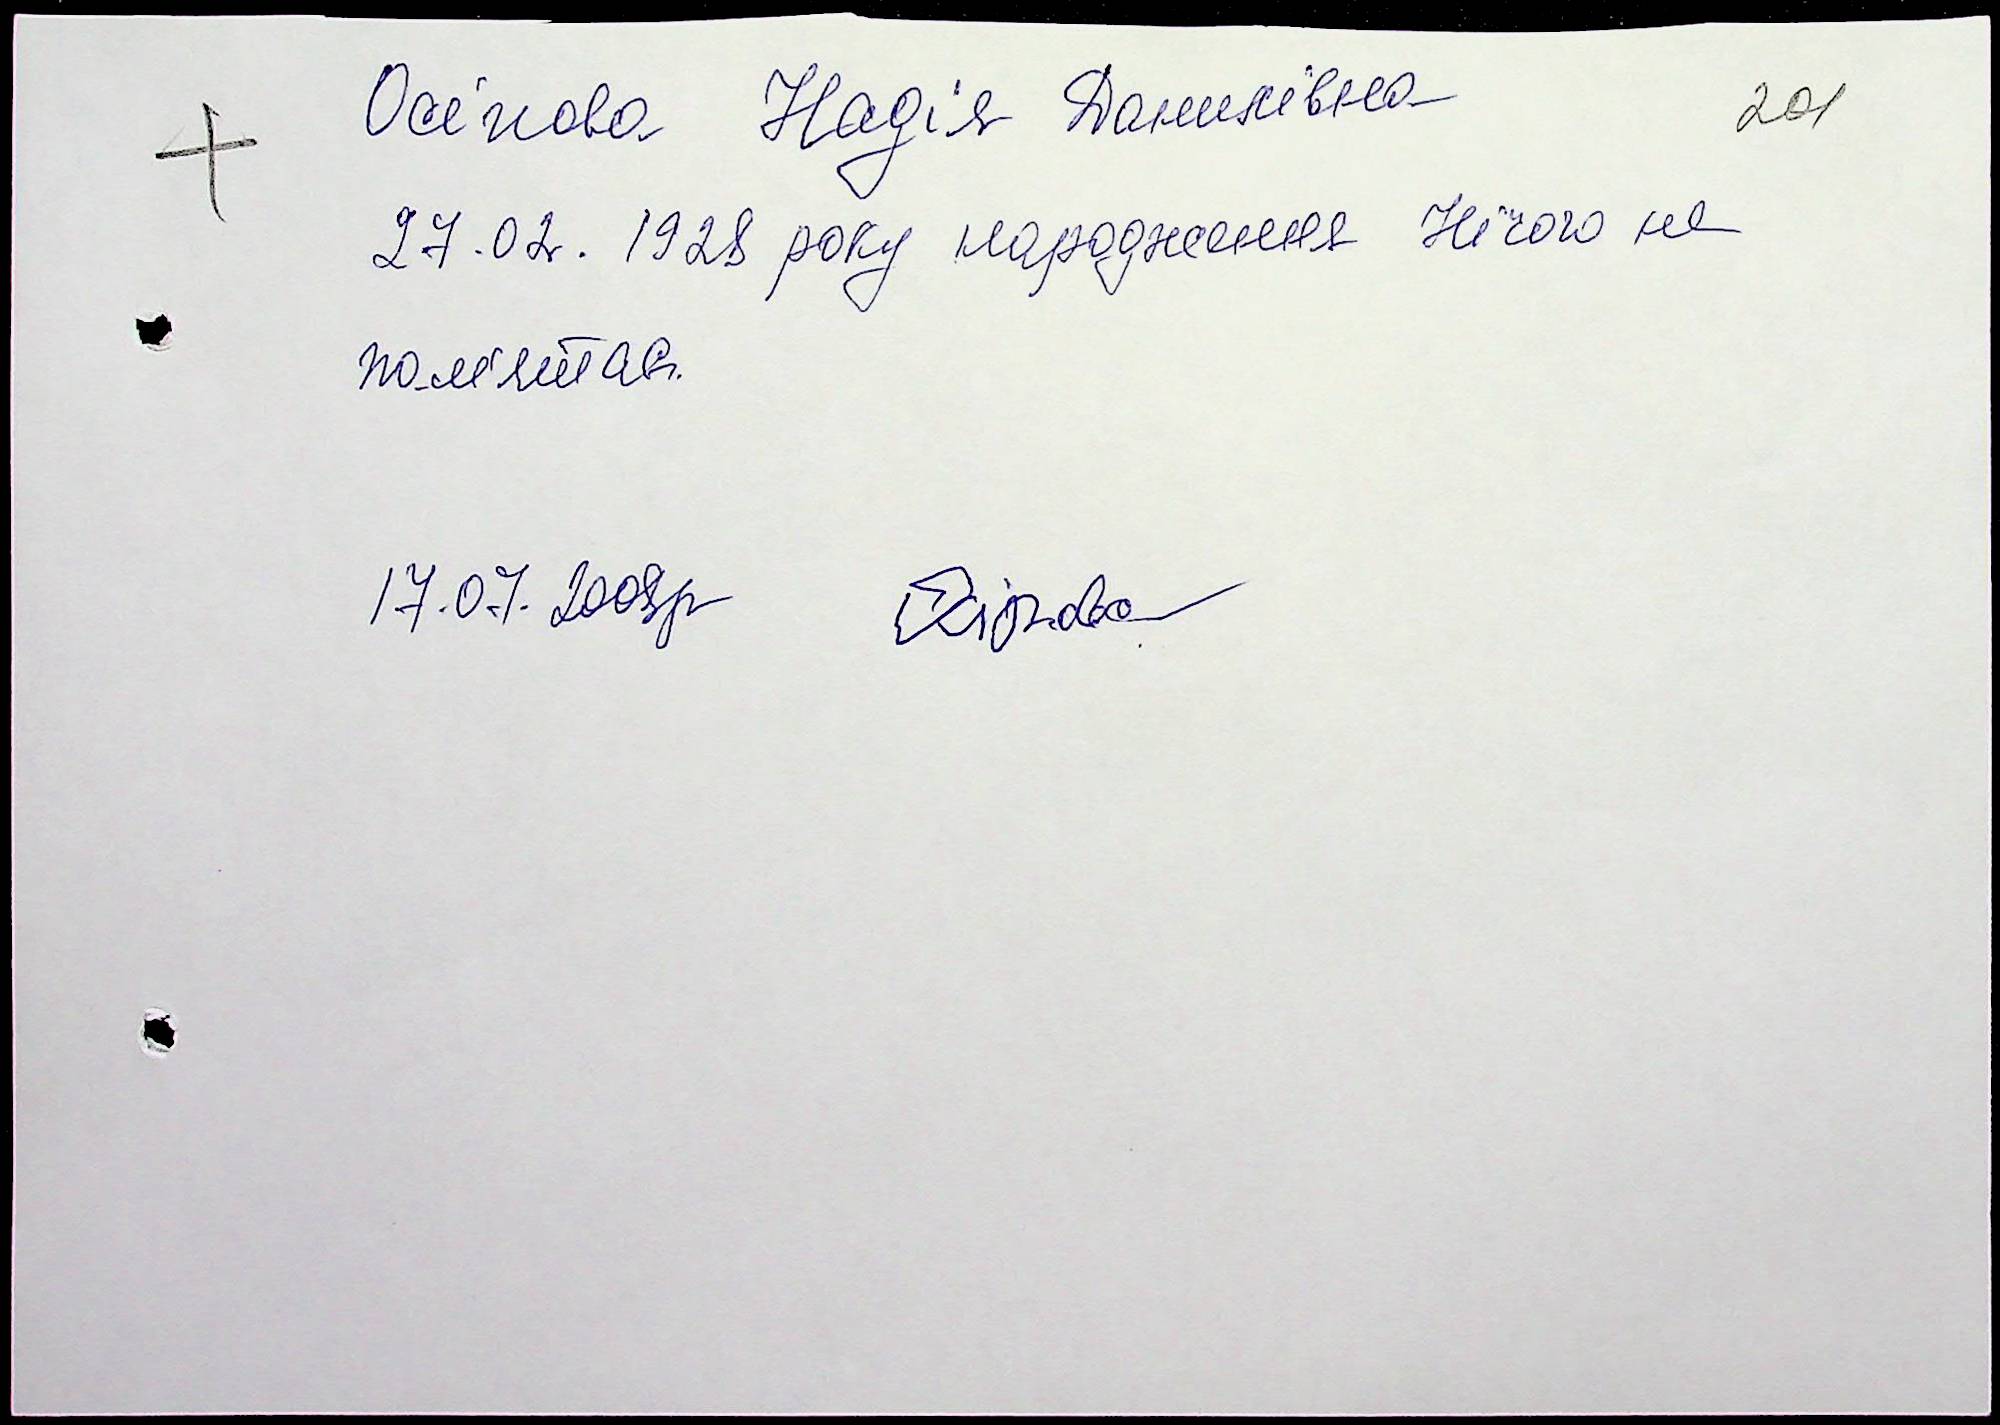 + Осіпова Надія Данилівна 201
27.02. 1928 року народження Нічого не
пам'ятає.
17.07.2008р